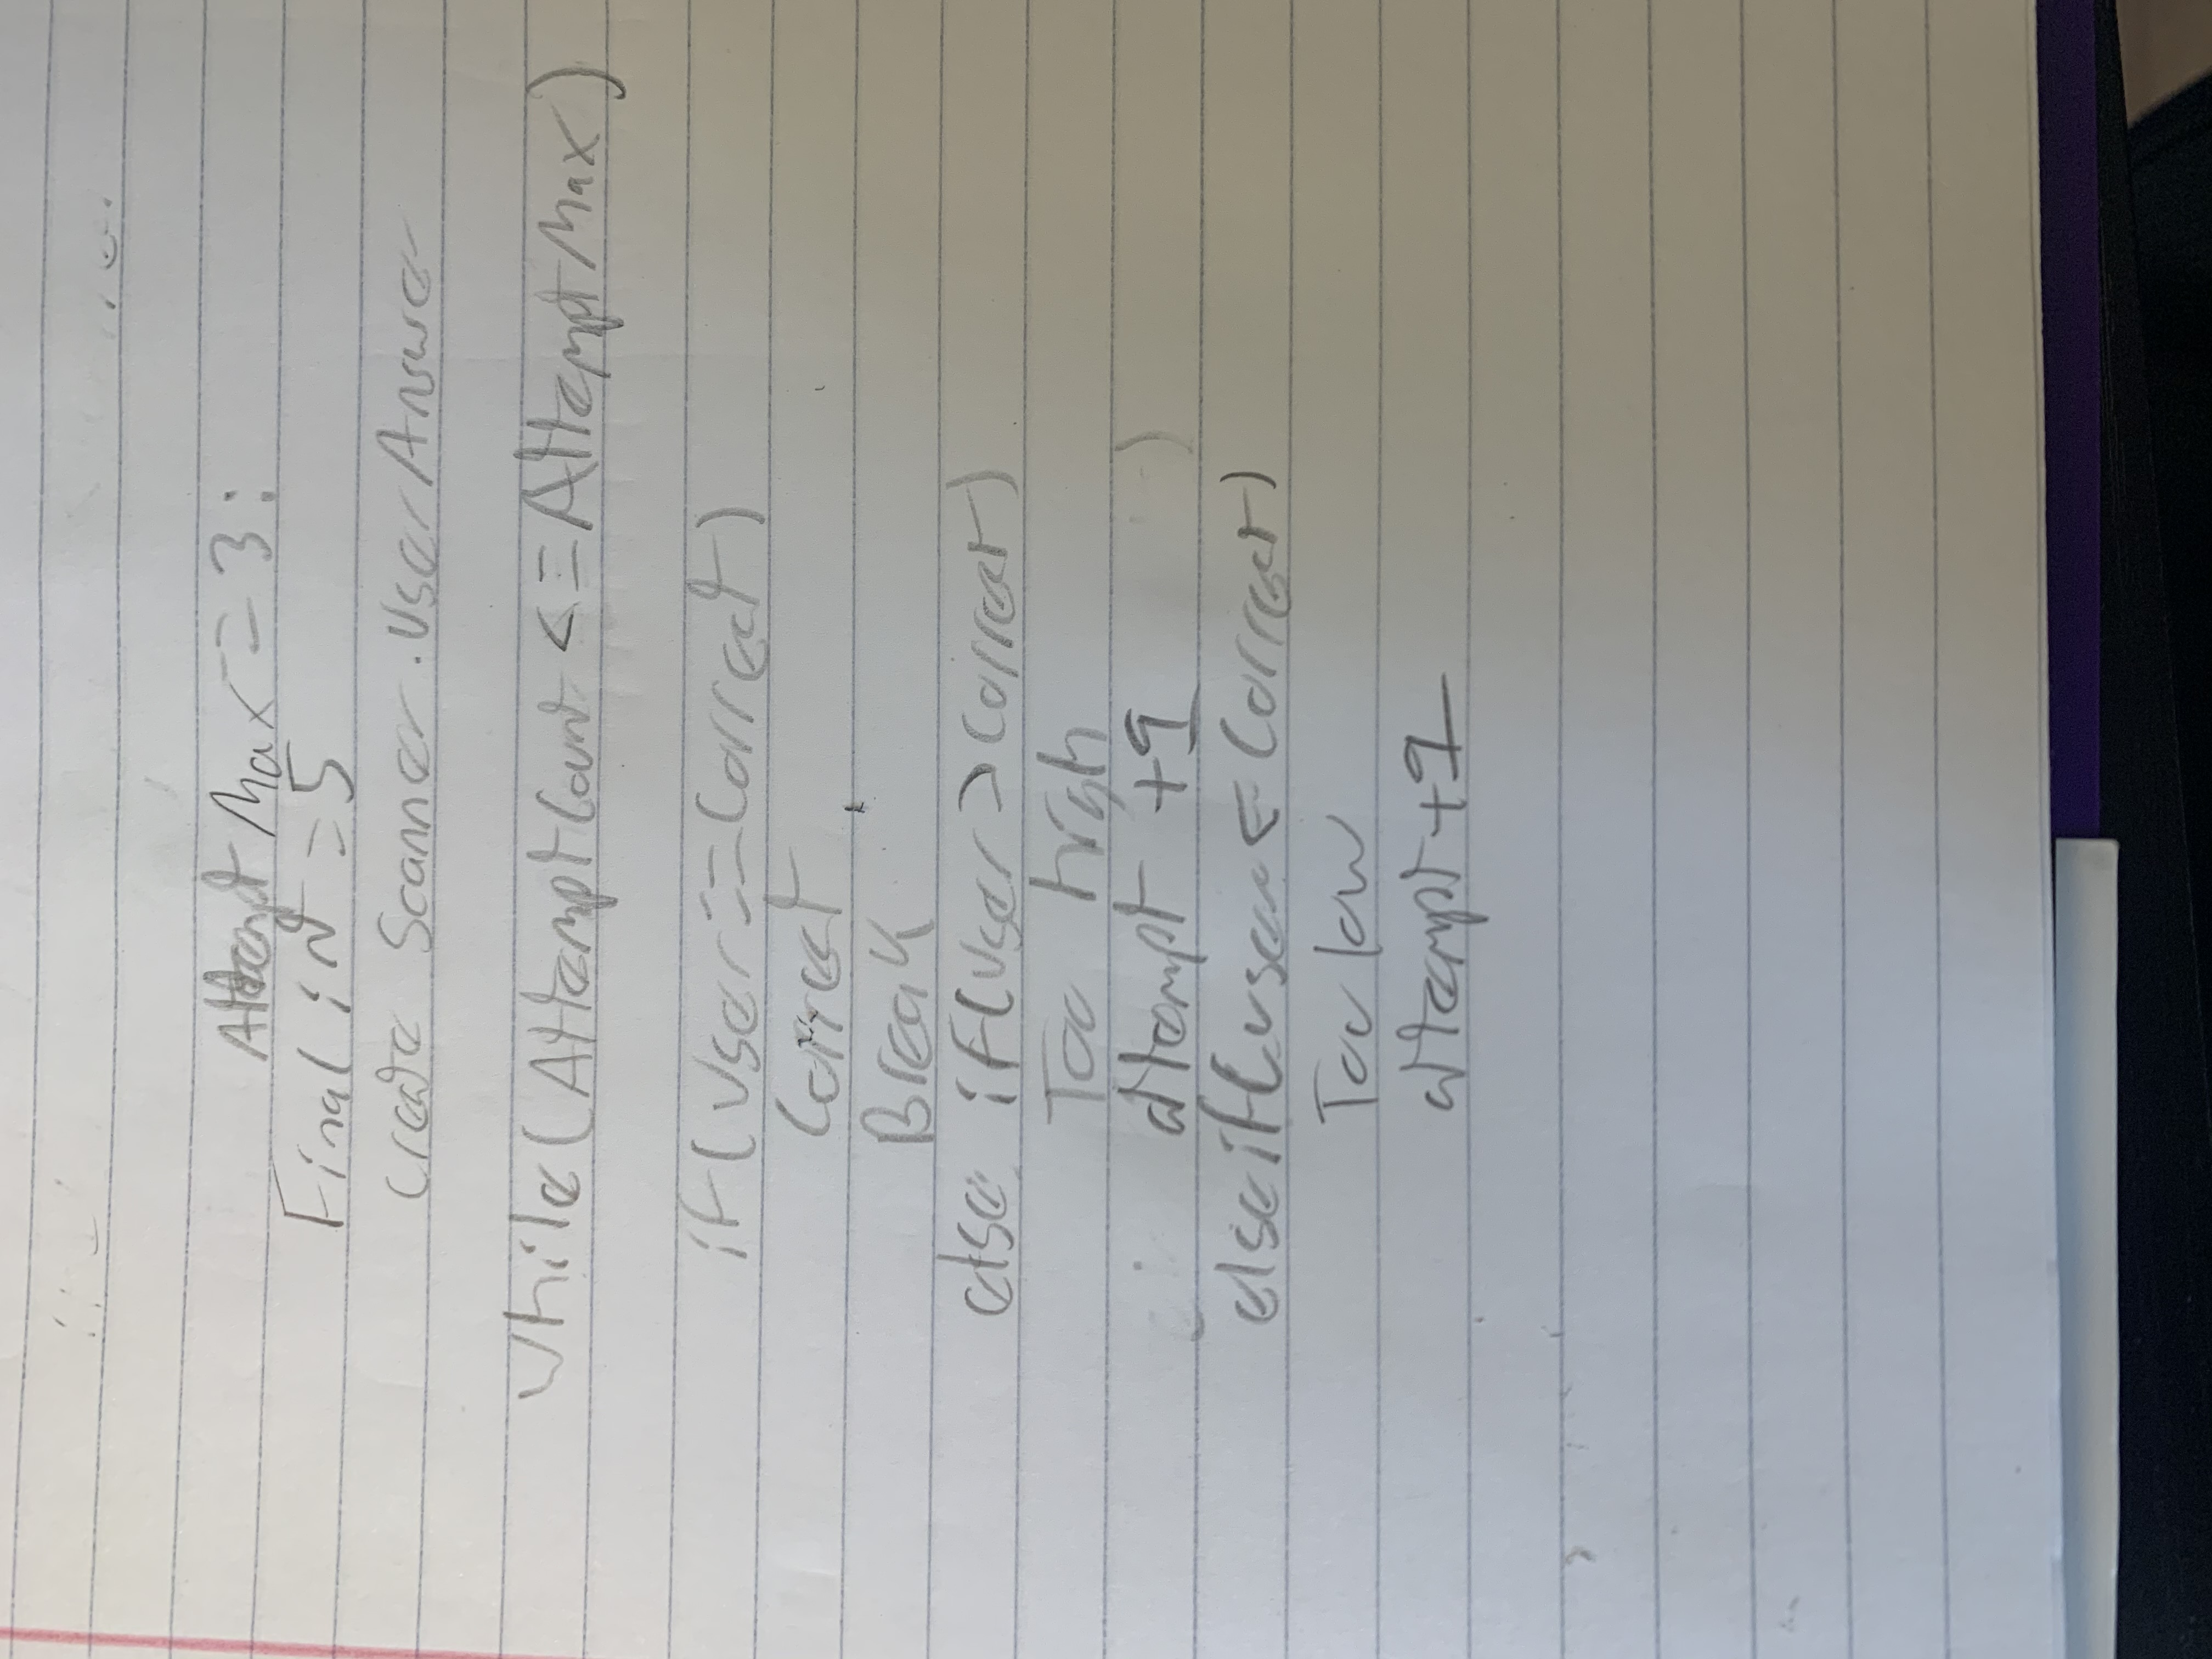 Attempt Max = 3;
Final int = 5
Create Scanner. User Answer
While(AttemptCount <= AttemptMax)
if(User == Correct)
Correct
Break
else if(User > Correct)
Too high
attempt +1
else if(user < Correct)
Too low
attempt +1